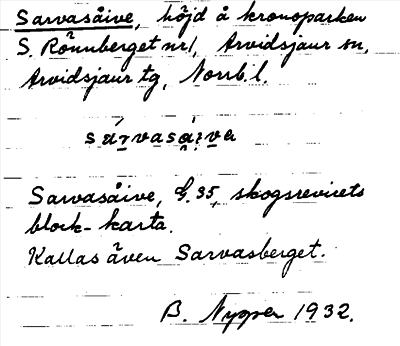 Sarvasåive, höjd å kronoparken
S. Rönnberget nr 1, Arvidsjaur sn,
Arvidsjaur tg, Norrb. l.
sárvasà̀iva
Sarvasåive, G. 35, skogsrevirets
block-karta.
Kallas även Sarvasberget.
B. Nyman 1932.